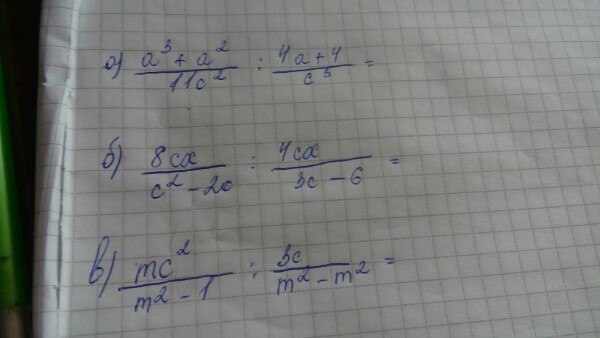 а) (a³ + a²)/(11c²) : (4a + 4)/(c³) =
б) (8cx)/(c² - 2c) : (4cx)/(3c - 6) =
в) (mc²)/(m² - 1) : (3c)/(m² - m²) =